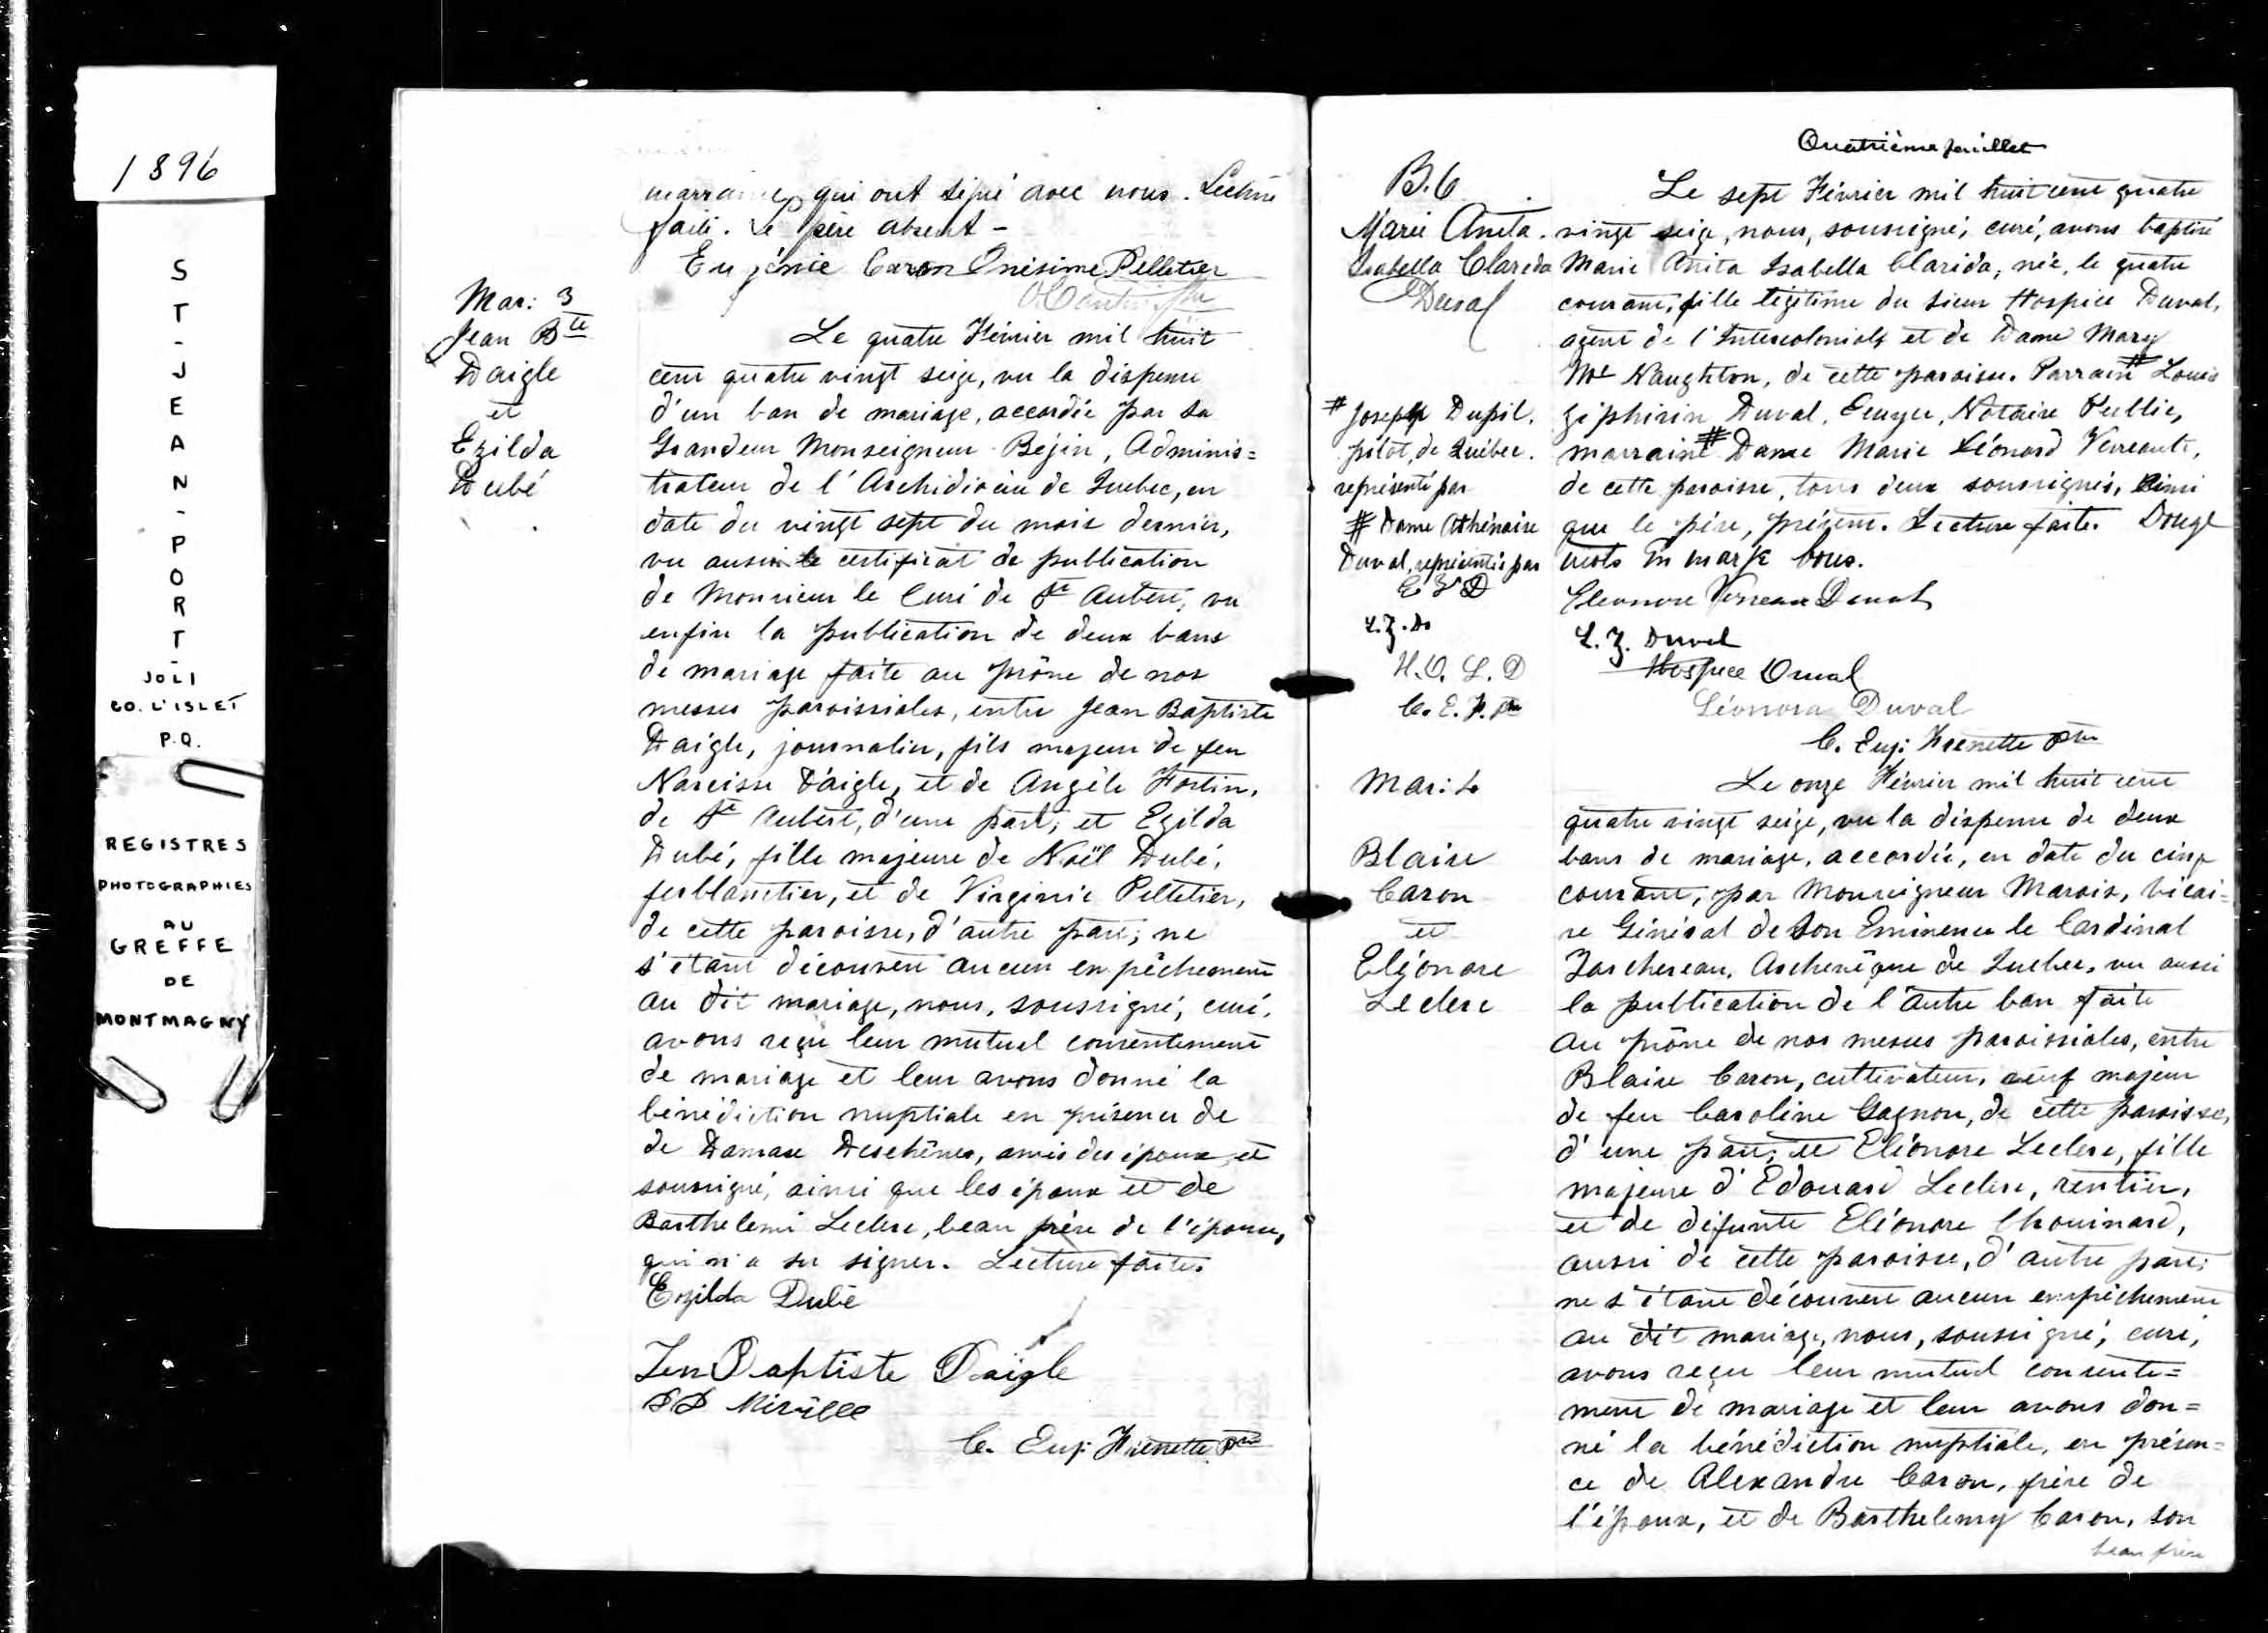 1896
S
T
-
J
E
A
N
-
P
O
R
T
-
JOLI
CO. L'ISLET
P.Q.
REGISTRES
PHOTOGRAPHIES
AU
GREFFE
DE
MONTMAGNY
marraine qui ont signé avec nous. Lecture
faite. Le père absent -
Eugénie Caron Onésime Pelletier
Mar: 3
Jean Bte
Daigle
et
Ezilda
Dubé
Le quatre Février mil huit
cent quatre vingt seize, vu la dispense
d'un ban de mariage, accordée par Sa
Grandeur Monseigneur Bégin, Adminis=
trateur de l'Archidiocèse de Québec, en
date du vingt sept du mois dernier,
vu aussi le certificat de publication
de Monsieur le Curé de St Aubert, vu
enfin la publication de deux bans
de mariage faite au prône de nos
messes paroissiales, entre Jean Baptiste
Daigle, journalier, fils majeur de feu
Narcisse Daigle, et de Angèle Fortin,
de St Aubert, d'une part; et Ezilda
Dubé, fille majeure de Noël Dubé,
ferblantier, et de Virginie Pelletier,
de cette paroisse, d'autre part; ne
s'étant découvert aucun empêchement
au dit mariage, nous, soussigné, curé,
avons reçu leur mutuel consentement
de mariage et leur avons donné la
bénédiction nuptiale en présence de
de Damase Deschênes, amis des époux et
soussigné, ainsi que les époux et de
Barthelemi Leclerc, beau frère de l'épouse,
qui n'a su signer. Lecture faite.
Ezilda Dubé
Jen Baptiste Daigle
DD Miville
C. Eug: Frenette Ptre
Quatrième feuillet
B.6
Marie Anita
Isabella Clarida
Duval
Le sept Février mil huit cent quatre
vingt seize, nous, soussigné, curé, avons baptisé
Marie Anita Isabella Clarida, née, le quatre
courant, fille légitime du sieur Hospice Duval,
agent de l'Intercolonial, et de Dame Mary
Mc Naughton, de cette paroisse. Parrain # Louis
Zéphirin Duval, Ecuyer, Notaire Public,
marraine # Dame Marie Léonard Verreault,
de cette paroisse, tous deux soussignés, ainsi
que le père, présent. Lecture faite. Douze
mots en marge bons.
# Joseph Dupil,
pilot, de Québec.
représenté par
# Dame Athénaïse
Duval, représentée par
E V D
L. Z. D.
H. O. L. D
C. E. F. Ptre
Eleonore Verreau Duval
L. Z. Duval
Hospice Duval
Léonora Duval
C. Eug: Frenette Ptre
Mar: 4
Blaise
Caron
et
Eléonore
Leclerc
Le onze Février mil huit cent
quatre vingt seize, vu la dispense de deux
bans de mariage, accordée, en date du cinq
courant, par Monseigneur Marois, Vicai=
re Général de Son Eminence le Cardinal
Taschereau, Archevêque de Québec, vu aussi
la publication de l'autre ban faite
au prône de nos messes paroissiales, entre
Blaise Caron, cultivateur, veuf majeur
de feu Caroline Gagnon, de cette paroisse,
d'une part; et Eléonore Leclerc, fille
majeure d'Edouard Leclerc, rentier,
et de défunte Eléonore Chouinard,
aussi de cette paroisse, d'autre part;
ne s'étant découvert aucun empêchement
au dit mariage, nous, soussigné, curé,
avons reçu leur mutuel consente=
ment de mariage et leur avons don=
né la bénédiction nuptiale, en présen=
ce de Alexandre Caron, frère de
l'époux, et de Barthelemy Caron, son
beau frère